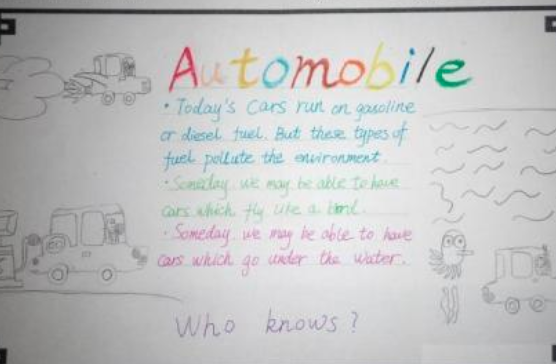 Automobile
· Today's Cars run on gasoline
or diesel fuel. But these types of
fuel pollute the environment.
· Someday we may be able to have
cars which fly like a bird.
· Someday we may be able to have
cars which go under the water.
Who knows?